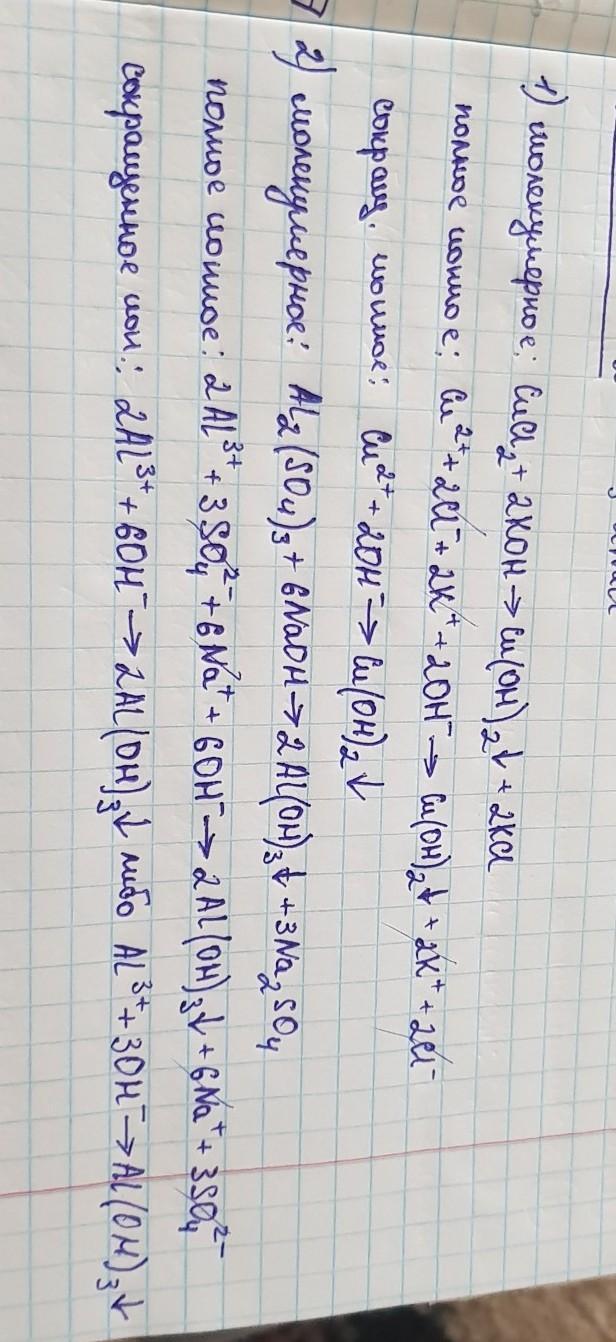 1) молекулярное: CuCl₂ + 2KOH → Cu(OH)₂↓ + 2KCl
полное ионное: Cu²⁺ + 2Cl⁻ + 2K⁺ + 2OH⁻ → Cu(OH)₂↓ + 2K⁺ + 2Cl⁻
сокращ. ионное: Cu²⁺ + 2OH⁻ → Cu(OH)₂↓
2) молекулярное: Al₂(SO₄)₃ + 6NaOH → 2Al(OH)₃↓ + 3Na₂SO₄
полное ионное: 2Al³⁺ + 3SO₄²⁻ + 6Na⁺ + 6OH⁻ → 2Al(OH)₃↓ + 6Na⁺ + 3SO₄²⁻
сокращенное ион.: 2Al³⁺ + 6OH⁻ → 2Al(OH)₃↓ либо Al³⁺ + 3OH⁻ → Al(OH)₃↓